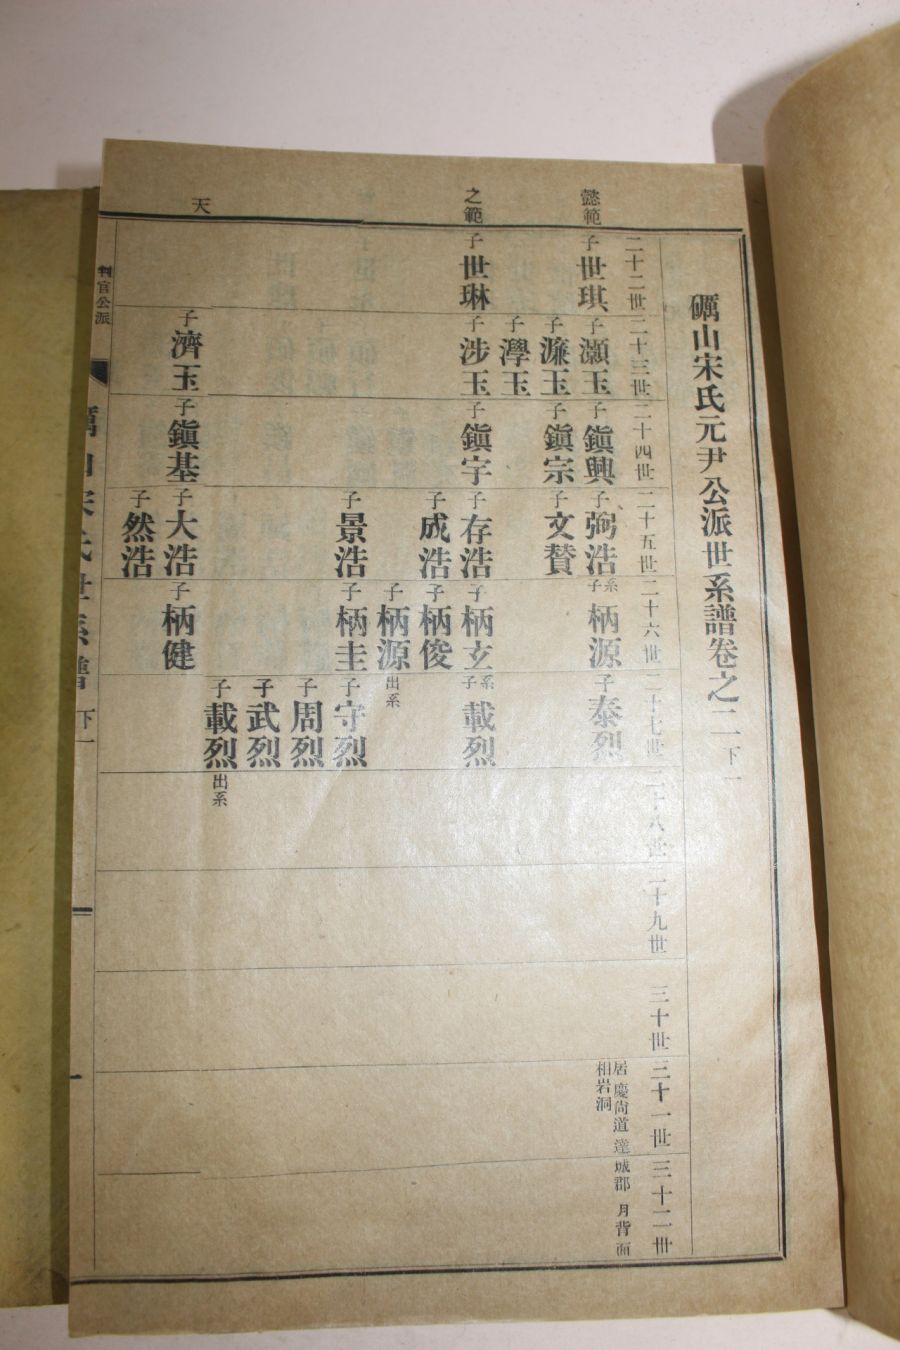 礪山宋氏元尹公派世系譜卷之二 下一
二十二世 二十三世 二十四世 二十五世 二十六世 二十七世 二十八世 二十九世 三十世 三十一世 三十二世
居 慶尙道 達城郡 月背面
相岩洞
懿範
子世琪 子灝玉 子鎭興 子弼浩 系子柄源 子泰烈
子濂玉 子鎭宗 子文贊
子澩玉
之範
子世琳 子涉玉 子鎭宇 子存浩 子柄玄 系子載烈
子成浩 子柄俊
子柄源 出系
子景浩 子柄圭 子守烈
子周烈
子武烈
子載烈 出系
天
子濟玉 子鎭基 子大浩 子柄健
子然浩
判官公派
礪山宋氏世系譜 下一
一